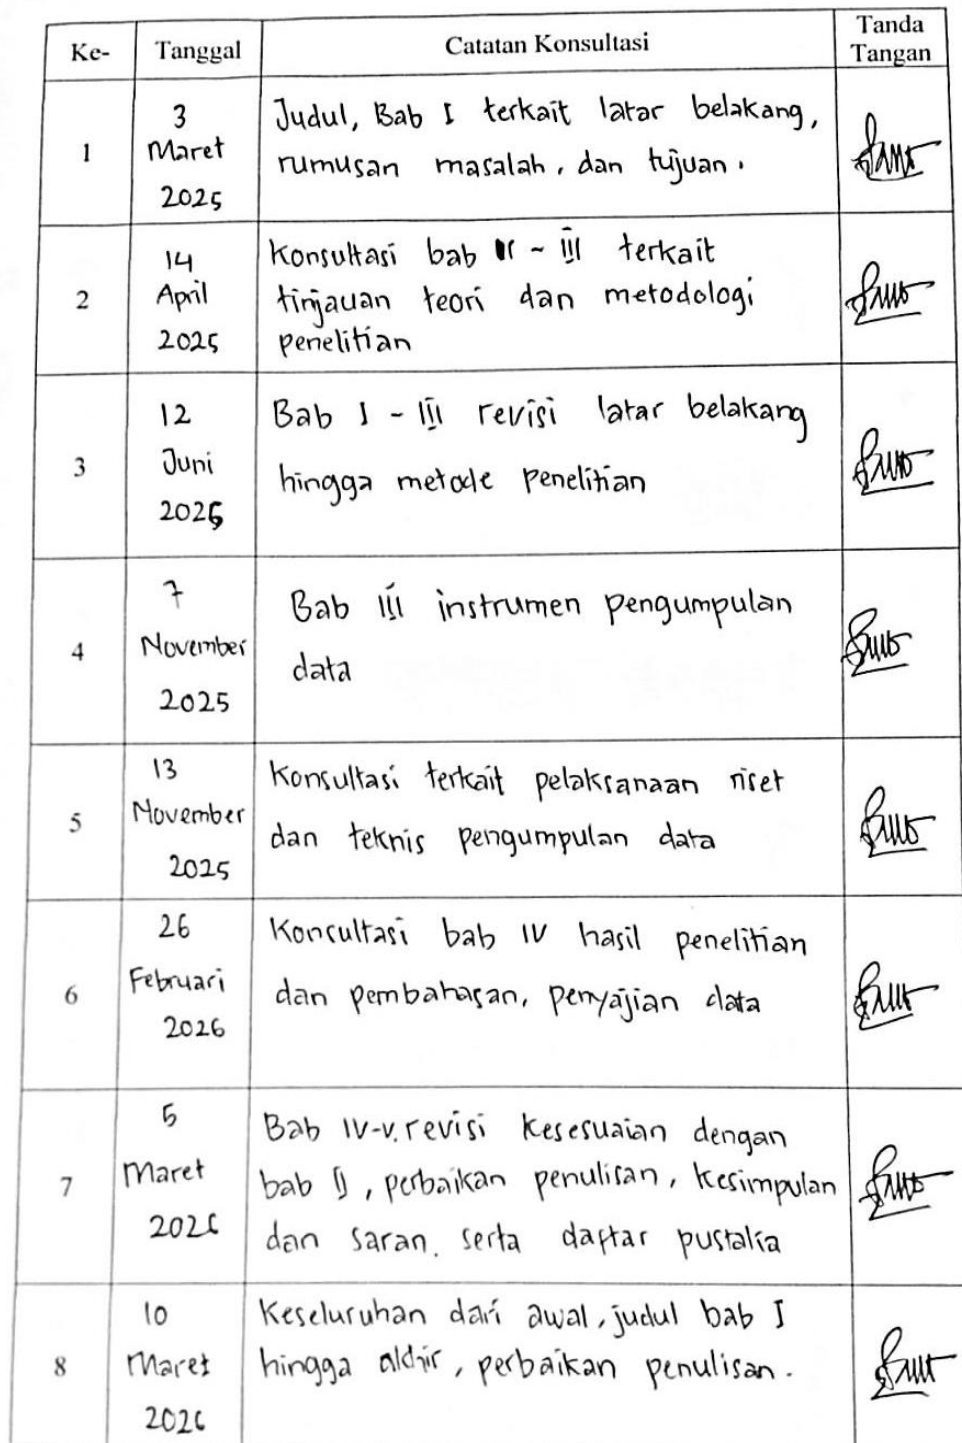 Ke- Tanggal Catatan Konsultasi Tanda Tangan
1
3
Maret
2025
Judul, Bab I terkait latar belakang,
rumusan masalah, dan tujuan.
2
14
April
2025
Konsultasi bab II - III terkait
tinjauan teori dan metodologi
penelitian
3
12
Juni
2025
Bab I - III revisi latar belakang
hingga metode penelitian
4
7
November
2025
Bab III instrumen pengumpulan
data
5
13
November
2025
Konsultasi terkait pelaksanaan riset
dan teknis pengumpulan data
6
26
Februari
2026
Konsultasi bab IV hasil penelitian
dan pembahasan, penyajian data
7
5
Maret
2026
Bab IV-V. revisi kesesuaian dengan
bab II, perbaikan penulisan, kesimpulan
dan saran. serta daftar pustaka
8
10
Maret
2026
Keseluruhan dari awal, judul bab I
hingga akhir, perbaikan penulisan.